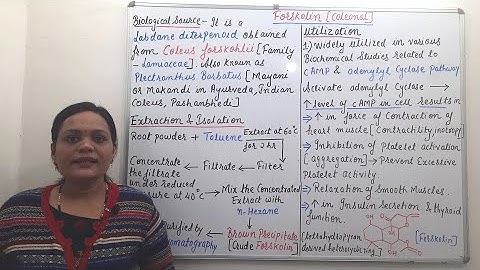 Forskolin [Coleonol]
Biological Source- It is a
labdane diterpenoid obtained
from Coleus forskohlii [Family
- Lamiaceae]. Also known as
Plectranthus Barbatus [Mayani
or Makandi in Ayurveda, Indian
Coleus, Pashanbhedi]
Extraction & Isolation
Root powder + Toluene Extract at 60°C
for 2 hr
Concentrate ← Filtrate ← Filter
the filtrate
under reduced
sure at 40°C → Mix the Concentrated
Extract with
n-Hexane
Purified by ← Brown Precipitate
omatography [Crude Forskolin]
Utilization
1) Widely utilized in various
Biochemical Studies related to
cAMP & adenylyl Cyclase Pathway
Activate adenylyl Cyclase →
↑ level of cAMP in cell results in
⇒ ↑ in force of Contraction of
heart muscle [Contractility inotropy]
⇒ Inhibition of Platelet activation
[aggregation] → Prevent Excessive
Platelet Activity.
⇒ Relaxation of Smooth Muscles.
⇒ ↑ in Insulin secretion & thyroid
function.
[tetrahydropyran
derived heterocyclic ring]
[Forskolin]